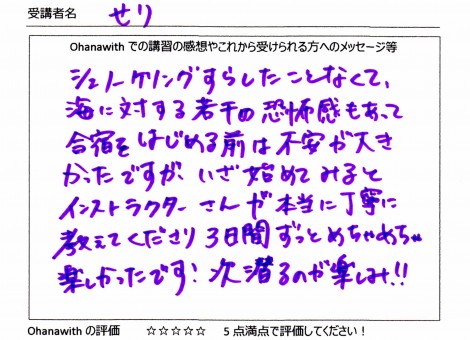 受講者名 せり
Ohanawith での講習の感想やこれから受けられる方へのメッセージ等
シュノーケリングすらしたことなくて、
海に対する若干の恐怖感もあって
合宿をはじめる前は不安が大き
かったですが、いざ始めてみると
インストラクターさんが本当に丁寧に
教えてくださり3日間ずっとめちゃめちゃ
楽しかったです! 次潜るのが楽しみ!!
Ohanawith の評価 ☆☆☆☆☆ 5点満点で評価してください!